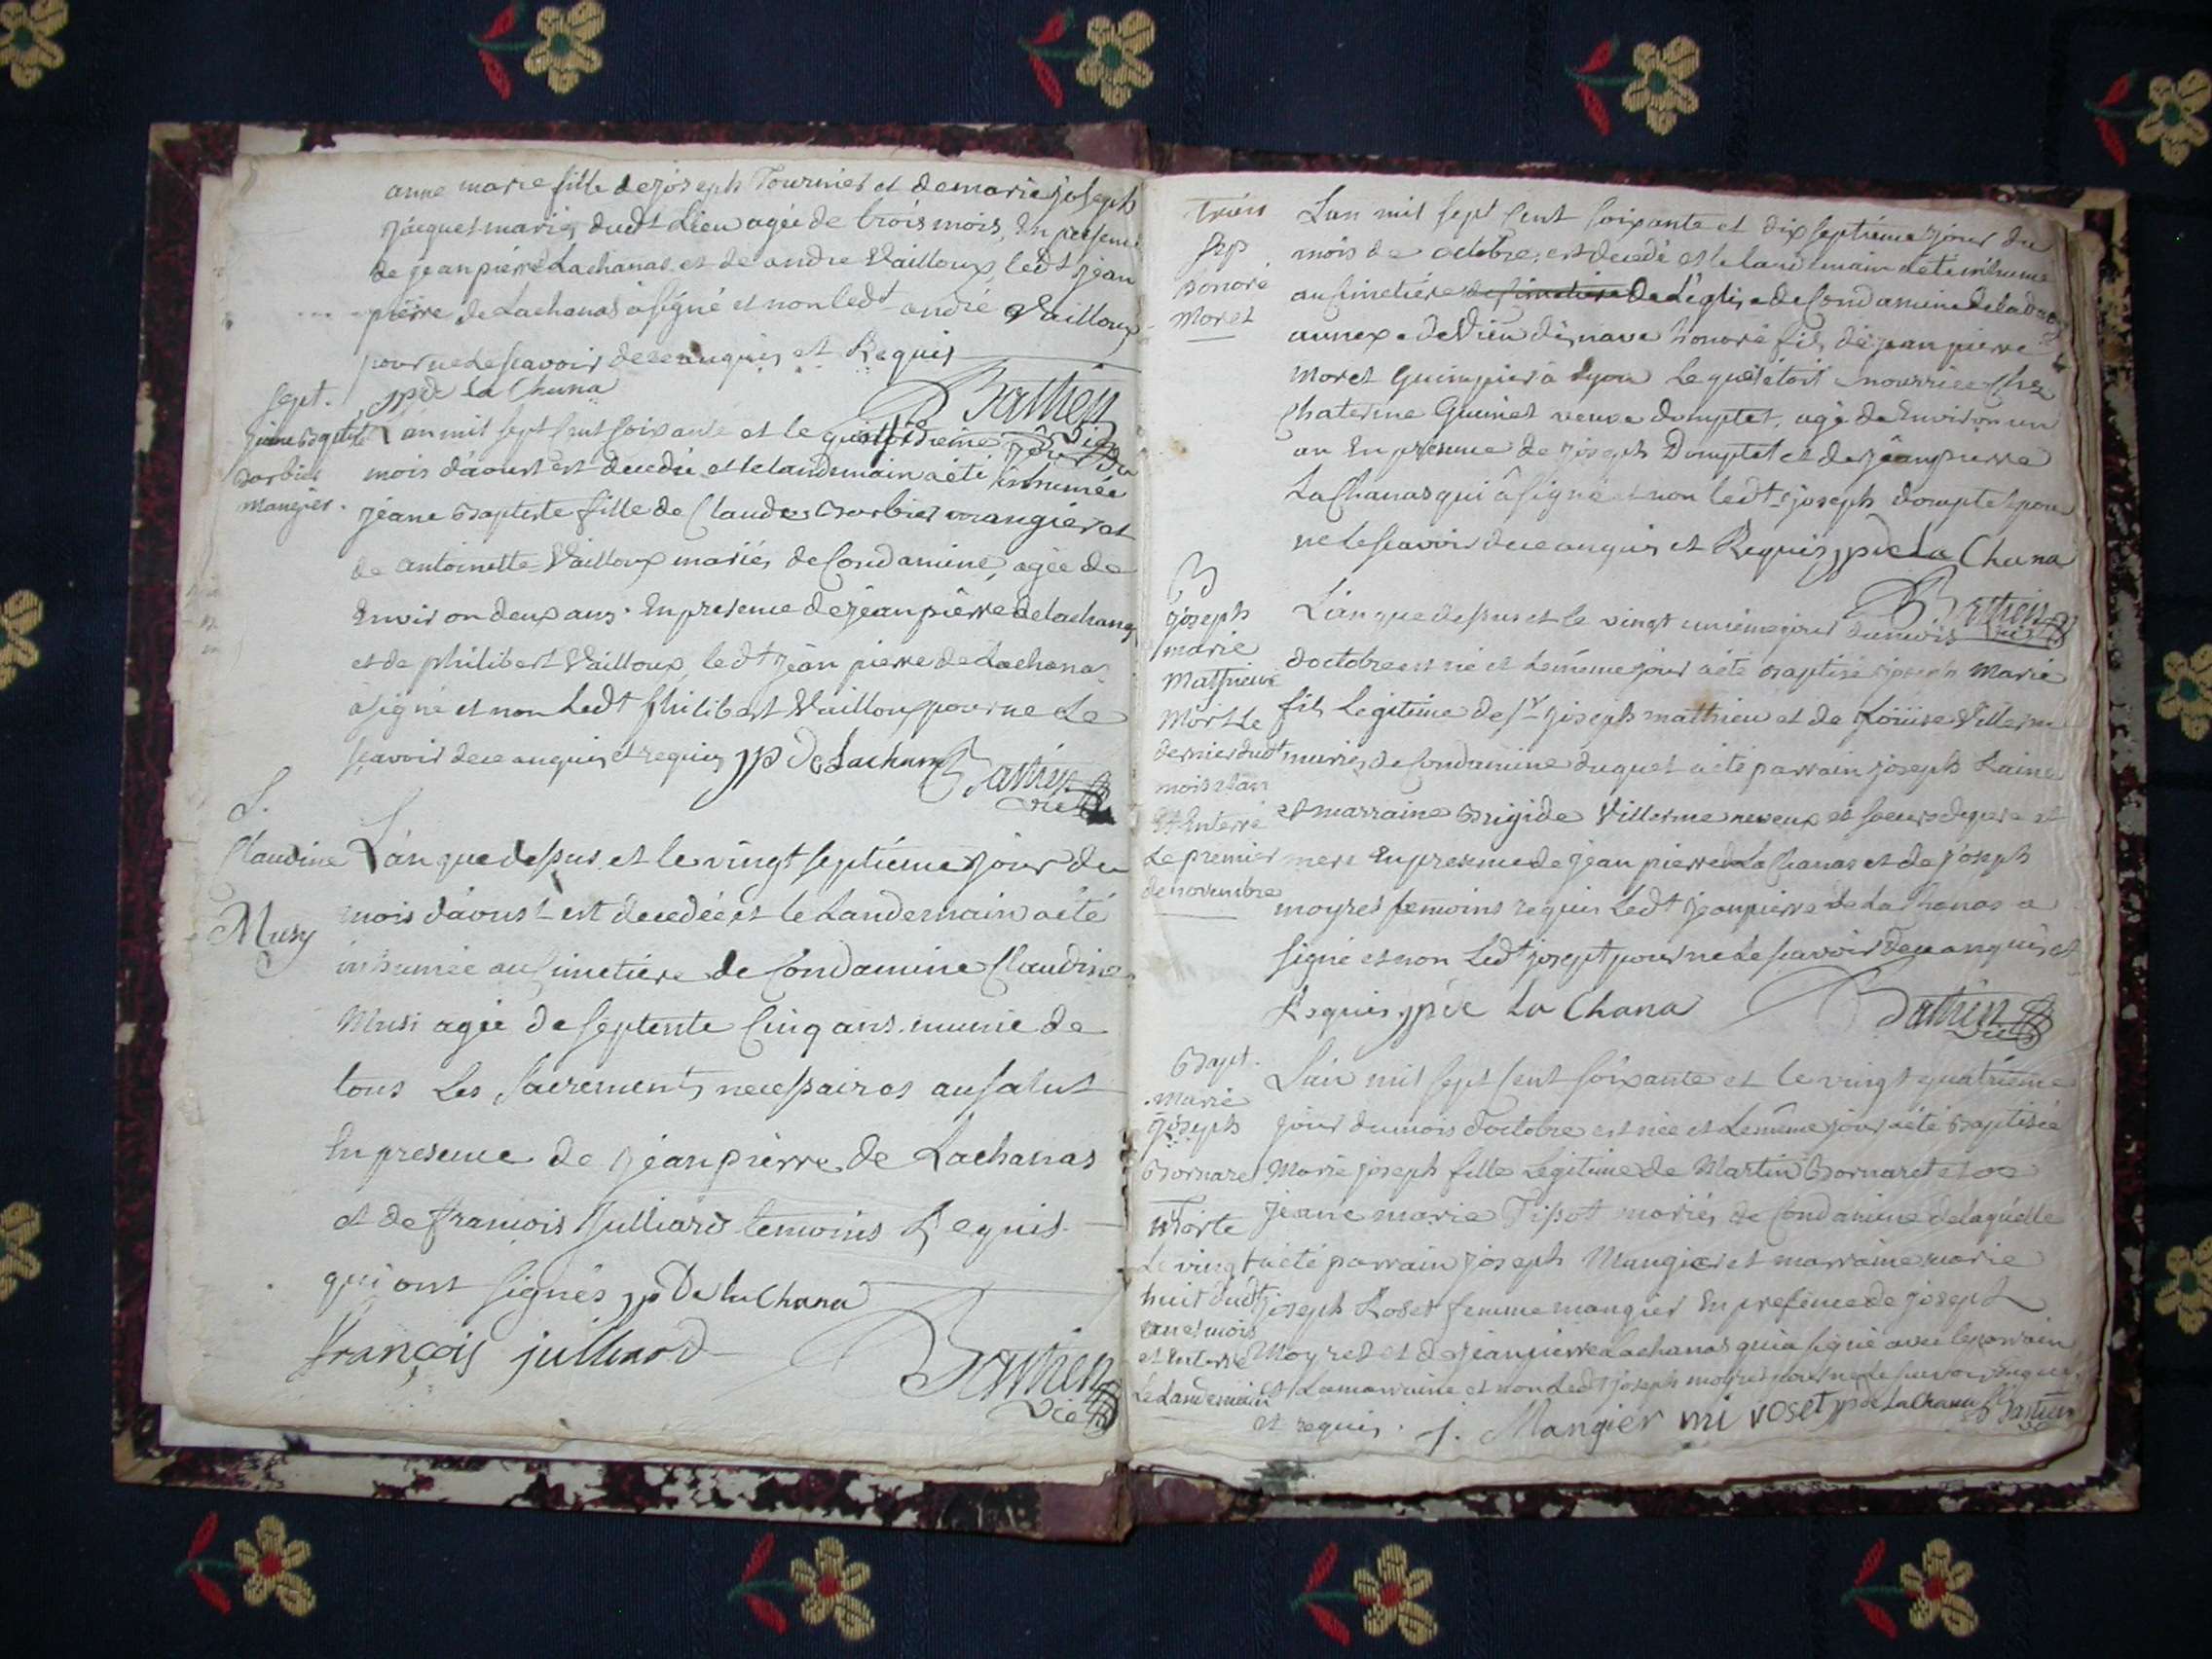 anne marie fille de joseph Tournier et de marie joseph
jaquet mariés dudt Lieu agée de trois mois, En presence
de jean pierre Lachanas et de andre Vailloux, ledt jean
pierre de Lachanas à signé et non ledt andré Vailloux
pour ne le scavoir de ce anquis et Requis
jp de la Chana
Bathien
vic
Sept.
jeane Baptiste
Barbier
mangier.
L'an mil sept sent soixante et le jour du
mois d'aoust est decedée et le landemain a été inhumée
jeane Baptiste fille de Claude Barbier mangier et
de antoinette Vailloux mariés de Condamine, agée de
Environ deux ans. En presence de jean pierre de lachanas
et de philibert Vailloux, ledt jean pierre de Lachanas
a signé et non Ledt philibert Vailloux pour ne Le
scavoir de ce anquis et requis jp De Lachana Bathien
vic
S.
Claudine
Musy
L'an que dessus et le vingt septiéme jour du
mois d'aoust est decedée et le Landemain a été
inhumée au Simetiere de Condamine Claudine
Musi agée de septente Cinq ans munie de
tous Les sacrements necessaires au salut
En presence de jean pierre de Lachanas
et de francois julliard temoins Requis
qui ont signés jp De la Chana
françois julliard
Bathien
vic
Sep
honoré
Moret
L'an mil sept sent soixante et dix septiéme jour du
mois de octobre, est decedé et le landemain a été inhumé
au simetiére de simetiére De L'eglise de Condamine de la
annexe de Vieu disnave honoré fils de jean pierre
Moret Guimpier à Lyon Lequel étoit nourrice Chez
Chaterine Guinet veuve domptet, agé de Environ un
an En presence de joseph Domptet et de jean pierre
LaChanas qui à signé et non ledt joseph domptet pour
ne le scavoir de ce anquis et Requis jp de La Chana
Bathien
vic
B
joseph
marie
Mathieu
Mort Le
dernier dudt
mois et an
Et Enterré
Le premier
de novembre
L'an que dessus et le vingt uniéme jour du mois
d'octobre est né et Le même jour a été baptisé joseph Marie
fils Legitime de Sr joseph mathieu et de Loüise Villerme
mariés de Condamine duquel a été parrain joseph
et marraine Brigide Villerme neveux et soeurs de pere et
mere En presence de jean pierre de LaChanas et de joseph
moyret temoins requis Ledt jean pierre de La Chanas a
signé et non Ledt josept pour ne Le scavoir de ce anquis et
Requis jp de La Chana
Bathien
vic
Bapt.
marie
joseph
Bornaret
Morte
Le vingt
huit dudt
an et mois
et Enterré
Le Landemain
L'an mil sept sent soixante et le vingt quatriéme
jour du mois d'octobre est née et Le même jour a été Baptisée
Marie joseph fille Legitime de Martin Bornaret et de
jeane marie Tissot mariés de Condamine de laquelle
a été parrain joseph Mangier et marraine marie
joseph Roset femme mangier En presence de joseph
Moyret et de jean pierre Lachanas qui a signé avec le parrain
et La marraine et non Ledt joseph moyret pour ne le scavoir
et requis. j. Mangier mi roset jp de LaChana Bathien